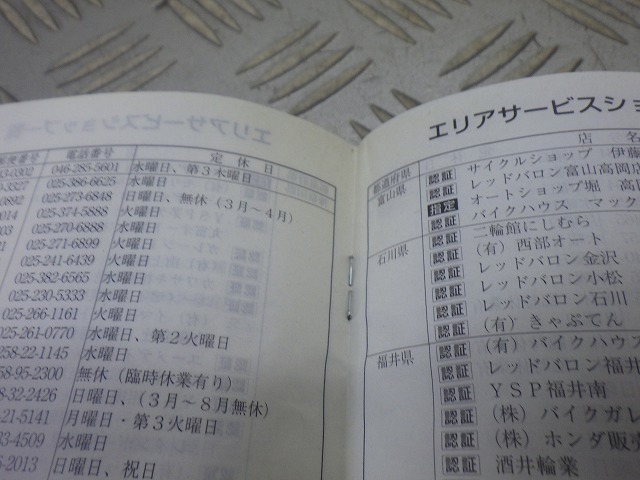 電話番号 定休日
046-285-5601 水曜日、第3木曜日
025-386-6625 水曜日
025-273-6848 日曜日、無休（3月～4月）
025-374-5888 火曜日
025-270-6888 水曜日
025-271-6899 火曜日
025-241-6439 火曜日
025-382-6565 水曜日
025-230-5333 水曜日
025-266-1161 火曜日
025-261-0770 水曜日、第2火曜日
258-22-1145 水曜日
58-95-2300 無休（臨時休業有り）
8-32-2426 日曜日、（3月～8月無休）
-21-5141 月曜日・第3火曜日
33-4509 水曜日
5-2013 日曜日、祝日
エリアサービスショ
都道府県 店名
富山県 認証 サイクルショップ 伊藤
認証 レッドバロン富山高岡店
指定 オートショップ堀 高
認証 バイクハウス マック
石川県 認証 二輪館にしむら
認証 （有）西部オート
認証 レッドバロン金沢
認証 レッドバロン小松
認証 レッドバロン石川
認証 （有）きゃぷてん
福井県 認証 （有）バイクハウス
認証 レッドバロン福井
認証 YSP福井南
認証 （株）バイクガレ
認証 （株）ホンダ販売
認証 酒井輪業